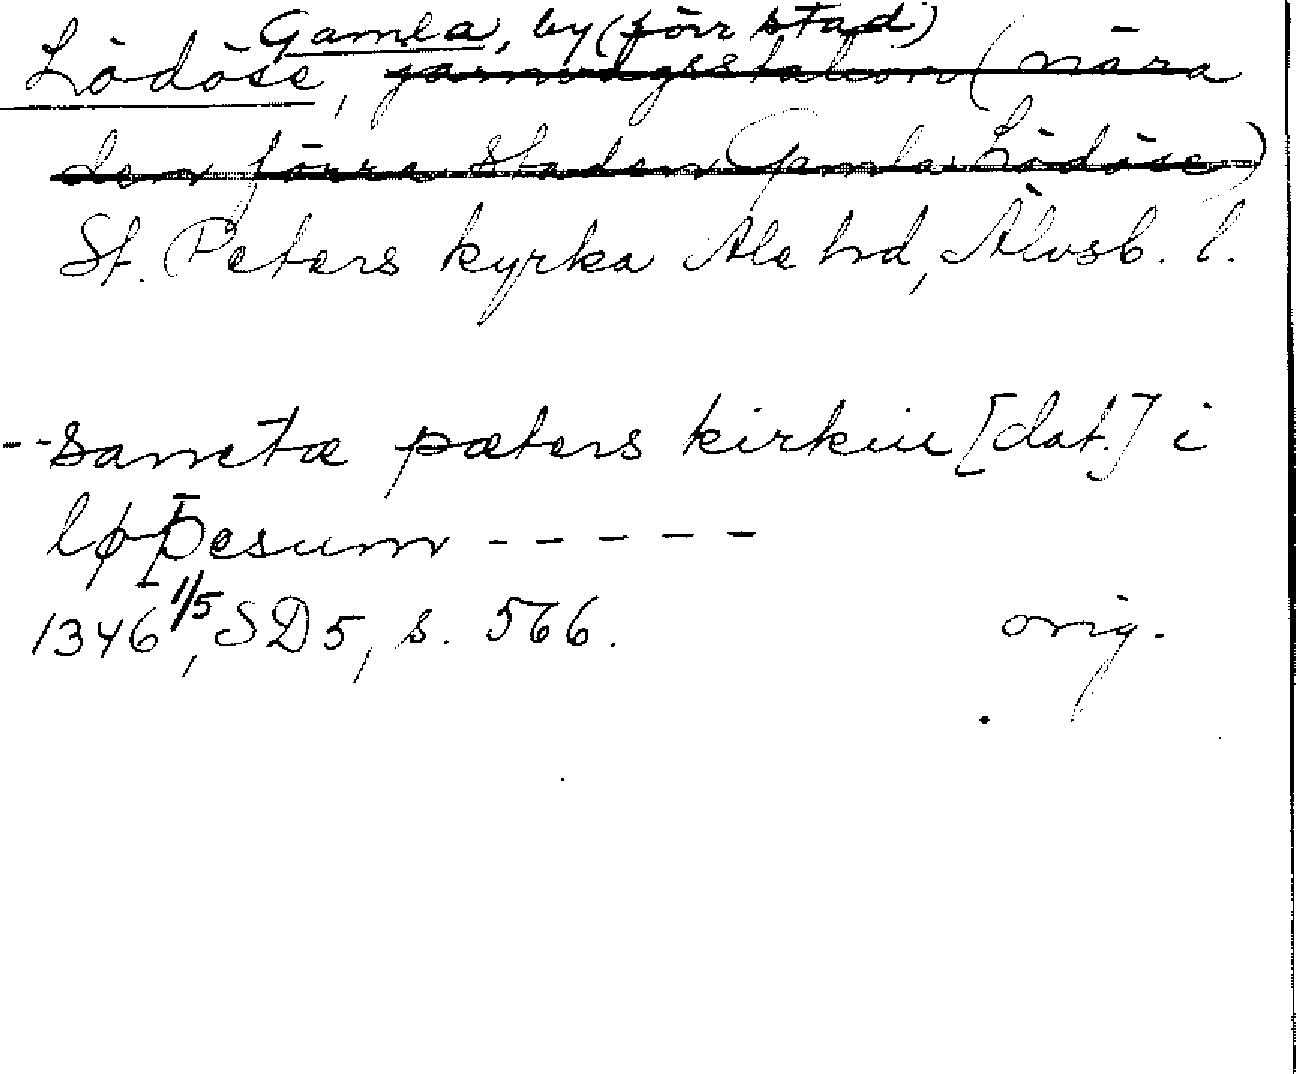 Gamla, by (förr stad)
Lödöse, järnvägsstation (nära
den förra staden Gamla Lödöse)
St. Peters kyrka Ale hd, Älvsb. l.
-- sanctæ pæters kirkiu [dat.] i
løþesum -----
1346 1/5, SD5, s. 566. orig.